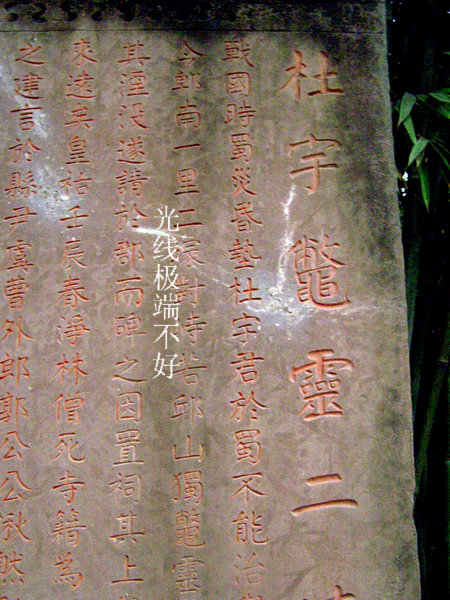 杜宇鼈靈二
戰國時蜀災昏墊杜宇君於蜀不能治
今郫南一里二冢對峙若邱山獨鼈靈
其湮沒遂請於郡而碑之因置祠其上
來遠矣皇祐壬辰春淨林僧死寺籍為
之建言於縣尹虞曹外郎郭公公秋然
光线极端不好